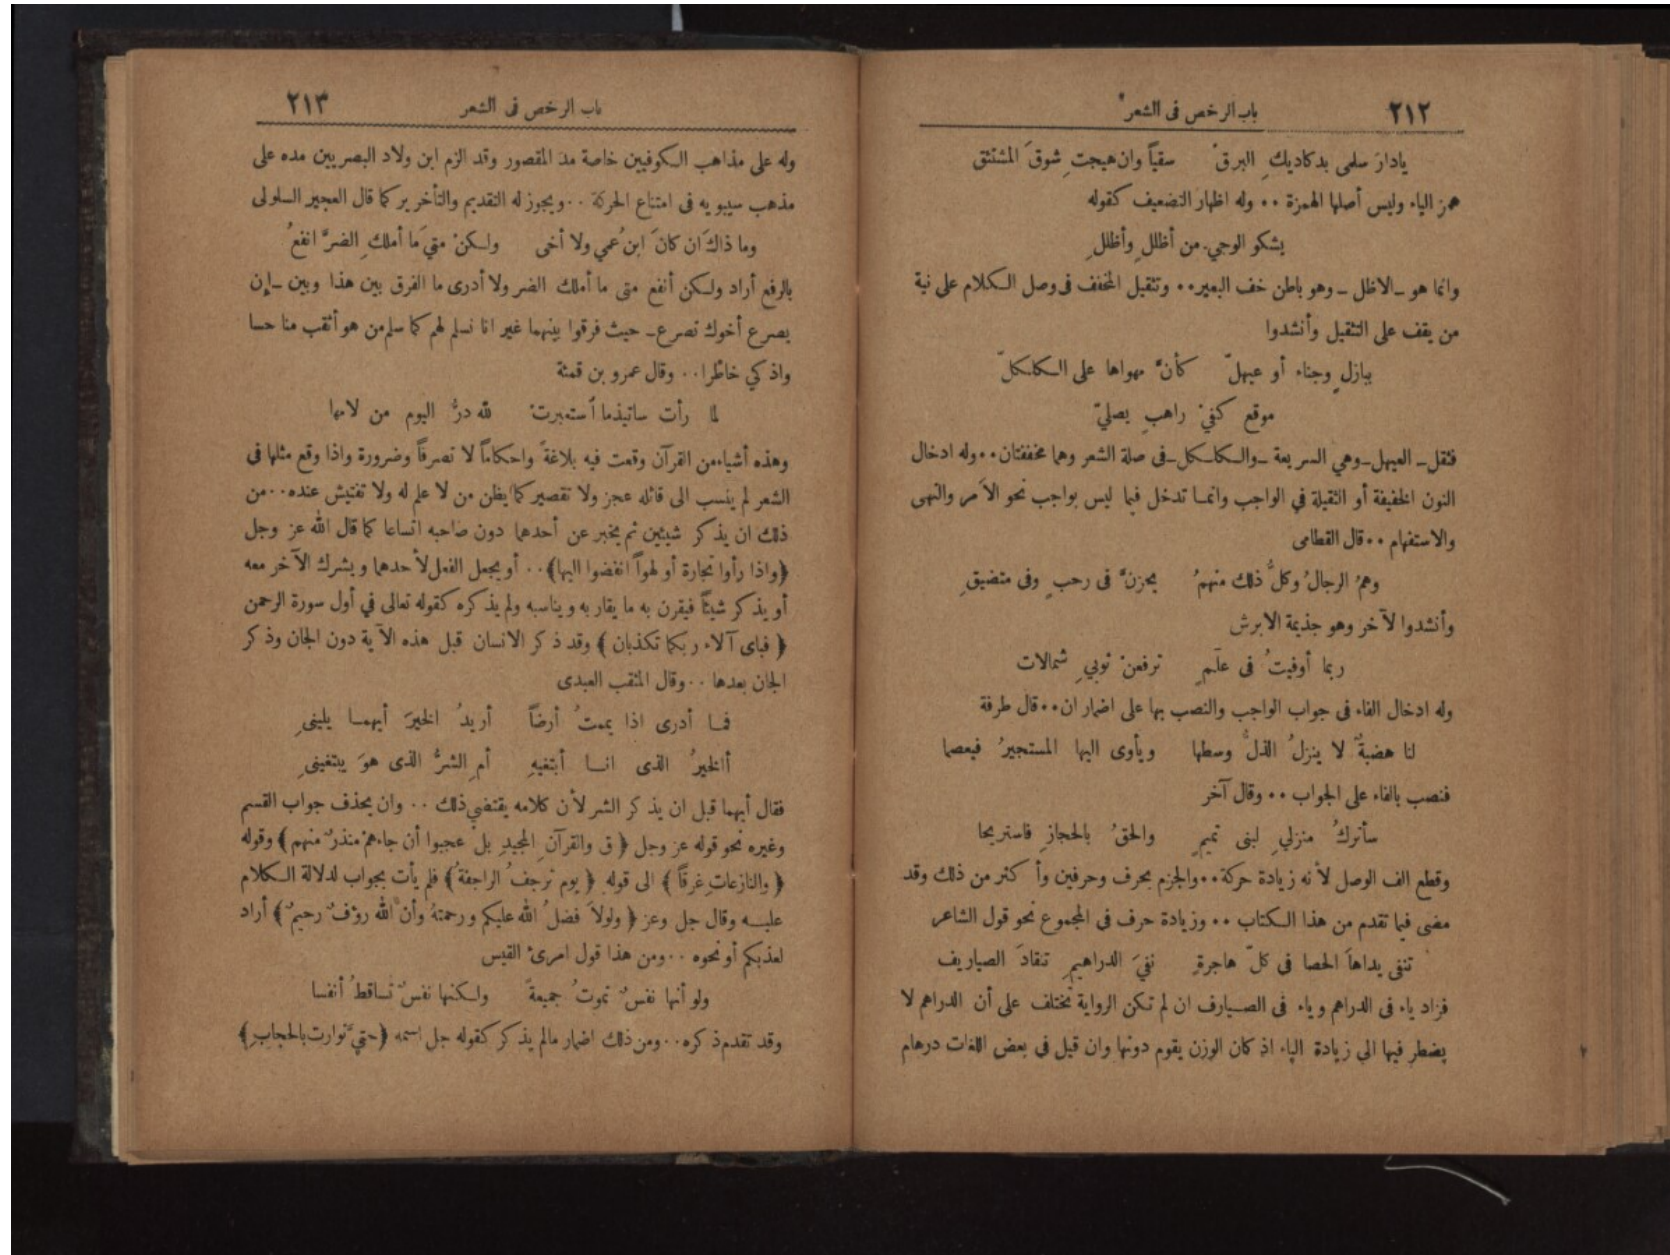 ٢١٢
باب الرخص فى الشعر
يادارَ سلمى بدكاديكِ البرقْ سقياً وان هيجتِ شوقَ المشتئق
همز الياء وليس أصلها الهمزة ٠٠ وله اظهار التضعيف كقوله
يشكو الوجي من أظللٍ وأظللِ
وانما هو ـ الاظل ـ وهو باطن خف البعير ٠٠ وتثقيل المخفف فى وصل الكلام على نية
من يقف على التثقيل وأنشدوا
ببازلٍ وجناء أو عيهلّ كأنَّ مهواها على الكلكلّ
موقع كفيْ راهبٍ يصليّ
فثقل ـ العيهل ـ وهي السريعة ـ والكلكل ـ فى صلة الشعر وهما مخففتان ٠٠ وله ادخال
النون الخفيفة أو الثقيلة في الواجب وانما تدخل فيما ليس بواجب نحو الأمر والنهى
والاستفهام ٠٠ قال القطامى
وهمُ الرجالُ وكلُّ ذلك منهمُ يحزنَّ فى رحبٍ وفى متضيقِ
وأنشدوا لآخر وهو جذيمة الابرش
ربما أوفيتُ فى علَمٍ ترفعنْ ثوبيِ شمالات
وله ادخال الفاء فى جواب الواجب والنصب بها على اضمار ان ٠٠ قال طرفة
لنا هضبةٌ لا ينزلُ الذلُّ وسطها ويأوى اليها المستجيرُ فيعصما
فنصب بالفاء على الجواب ٠٠ وقال آخر
سأتركُ منزليِ لبنى تميمٍ والحقُ بالحجازِ فاستريحا
وقطع الف الوصل لأنه زيادة حركة ٠٠ والجزم بحرف وحرفين وأكثر من ذلك وقد
مضى فيما تقدم من هذا الكتاب ٠٠ وزيادة حرف فى المجموع نحو قول الشاعر
تنفى يداها الحصا فى كلّ هاجرةٍ نفيَ الدراهيمِ تنقادَ الصياريف
فزاد ياء فى الدراهم وياء فى الصيارف ان لم تكن الرواية تختلف على أن الدراهم لا
يضطر فيها الي زيادة الياء اذ كان الوزن يقوم دونها وان قيل فى بعض اللغات درهام
٢١٣
باب الرخص فى الشعر
وله على مذاهب الكوفيين خاصة مد المقصور وقد الزم ابن ولاد البصريين مده على
مذهب سيبويه فى امتناع الحركة ٠٠ ويجوز له التقديم والتأخير كما قال العجير السلولى
وما ذاك ان كانَ ابنُ عمي ولا أخى ولكنْ متي ما أملكِ الضرَّ انفعُ
بالرفع أراد ولكن أنفع متى ما أملك الضر ولا أدرى ما الفرق بين هذا وبين ـ إن
يصرع أخوك تصرع ـ حيث فرقوا بينهما غير انا نسلم لهم كما سلم من هو أثقب منا حسا
واذكي خاطرا ٠٠ وقال عمرو بن قمئة
لما رأت ساتيذما أستعبرتْ لله درُّ اليوم من لامها
وهذه أشياء من القرآن وقعت فيه بلاغةً واحكاماً لا تصرفاً وضرورة واذا وقع مثلها فى
الشعر لم ينسب الى قائله عجز ولا تقصير كما يظن من لا علم له ولا تفتيش عنده ٠٠ من
ذلك ان يذكر شيئين ثم يخبر عن أحدهما دون صاحبه اتساعا كما قال الله عز وجل
﴿واذا رأوا تجارة أو لهواً انفضوا اليها﴾ ٠٠ أو يجعل الفعل لأحدهما ويشرك الآخر معه
أو يذكر شيئاً فيقرن به ما يقاربه ويناسبه ولم يذكره كقوله تعالى في أول سورة الرحمن
﴿ فباى آلاء ربكما تكذبان ﴾ وقد ذكر الانسان قبل هذه الآية دون الجان وذكر
الجان بعدها ٠٠ وقال المثقب العبدى
فما أدرى اذا يممتُ أرضاً أريدُ الخيرَ أيهما يلينىِ
أالخيرُ الذى انا أبتغيهِ أمِ الشرُّ الذى هوَ يبتغينىِ
فقال أيهما قبل ان يذكر الشر لأن كلامه يقتضي ذلك ٠٠ وان يحذف جواب القسم
وغيره نحو قوله عز وجل ﴿ ق والقرآنِ المجيدِ بل عجبوا أن جاءهمْ منذرٌ منهم ﴾ وقوله
﴿ والنازعات غرقاً ﴾ الى قوله ﴿ يوم ترجفُ الراجفةُ ﴾ فلم يأت بجواب لدلالة الكلام
عليه وقال جل وعز ﴿ ولولاَ فضلُ الله عليكم ورحمتهُ وأن الله رؤفٌ رحيمٌ ﴾ أراد
لعذبكم أو نحوه ٠٠ ومن هذا قول امرئ القيس
ولو أنها نفسٌ تموتُ جميعةً ولكنها نفسٌ تساقطُ أنفسا
وقد تقدم ذكره ٠٠ ومن ذلك اضمار مالم يذكر كقوله جل اسمه ﴿ حتيَّ توارت بالحجابِ ﴾